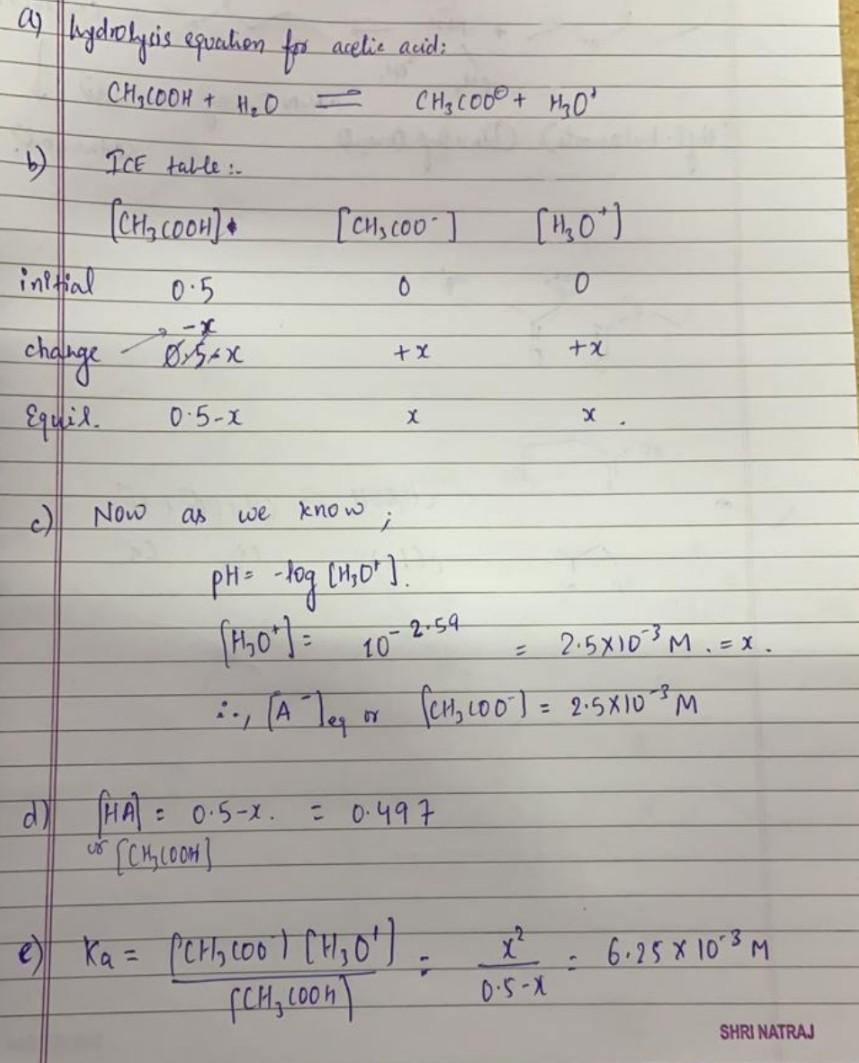 a) hydrolysis equation for acetic acid:
CH₃COOH + H₂O ⇌ CH₃COO⊖ + H₃O⁺
b) ICE table :-
[CH₃COOH] [CH₃COO⁻] [H₃O⁺]
initial 0.5 0 0
-x
change 0.5-x +x +x
Equil. 0.5-x x x .
c) Now as we know ;
pH = -log [H₃O⁺].
[H₃O⁺] = 10^-2.59 = 2.5×10⁻³ M . = x .
∴, [A⁻]eq or [CH₃COO⁻] = 2.5×10⁻³ M
d) [HA] = 0.5-x. = 0.497
or [CH₃COOH]
e) Ka = [CH₃COO⁻] [H₃O⁺] / [CH₃COOH] = x² / 0.5-x = 6.25 × 10⁻³ M
SHRI NATRAJ